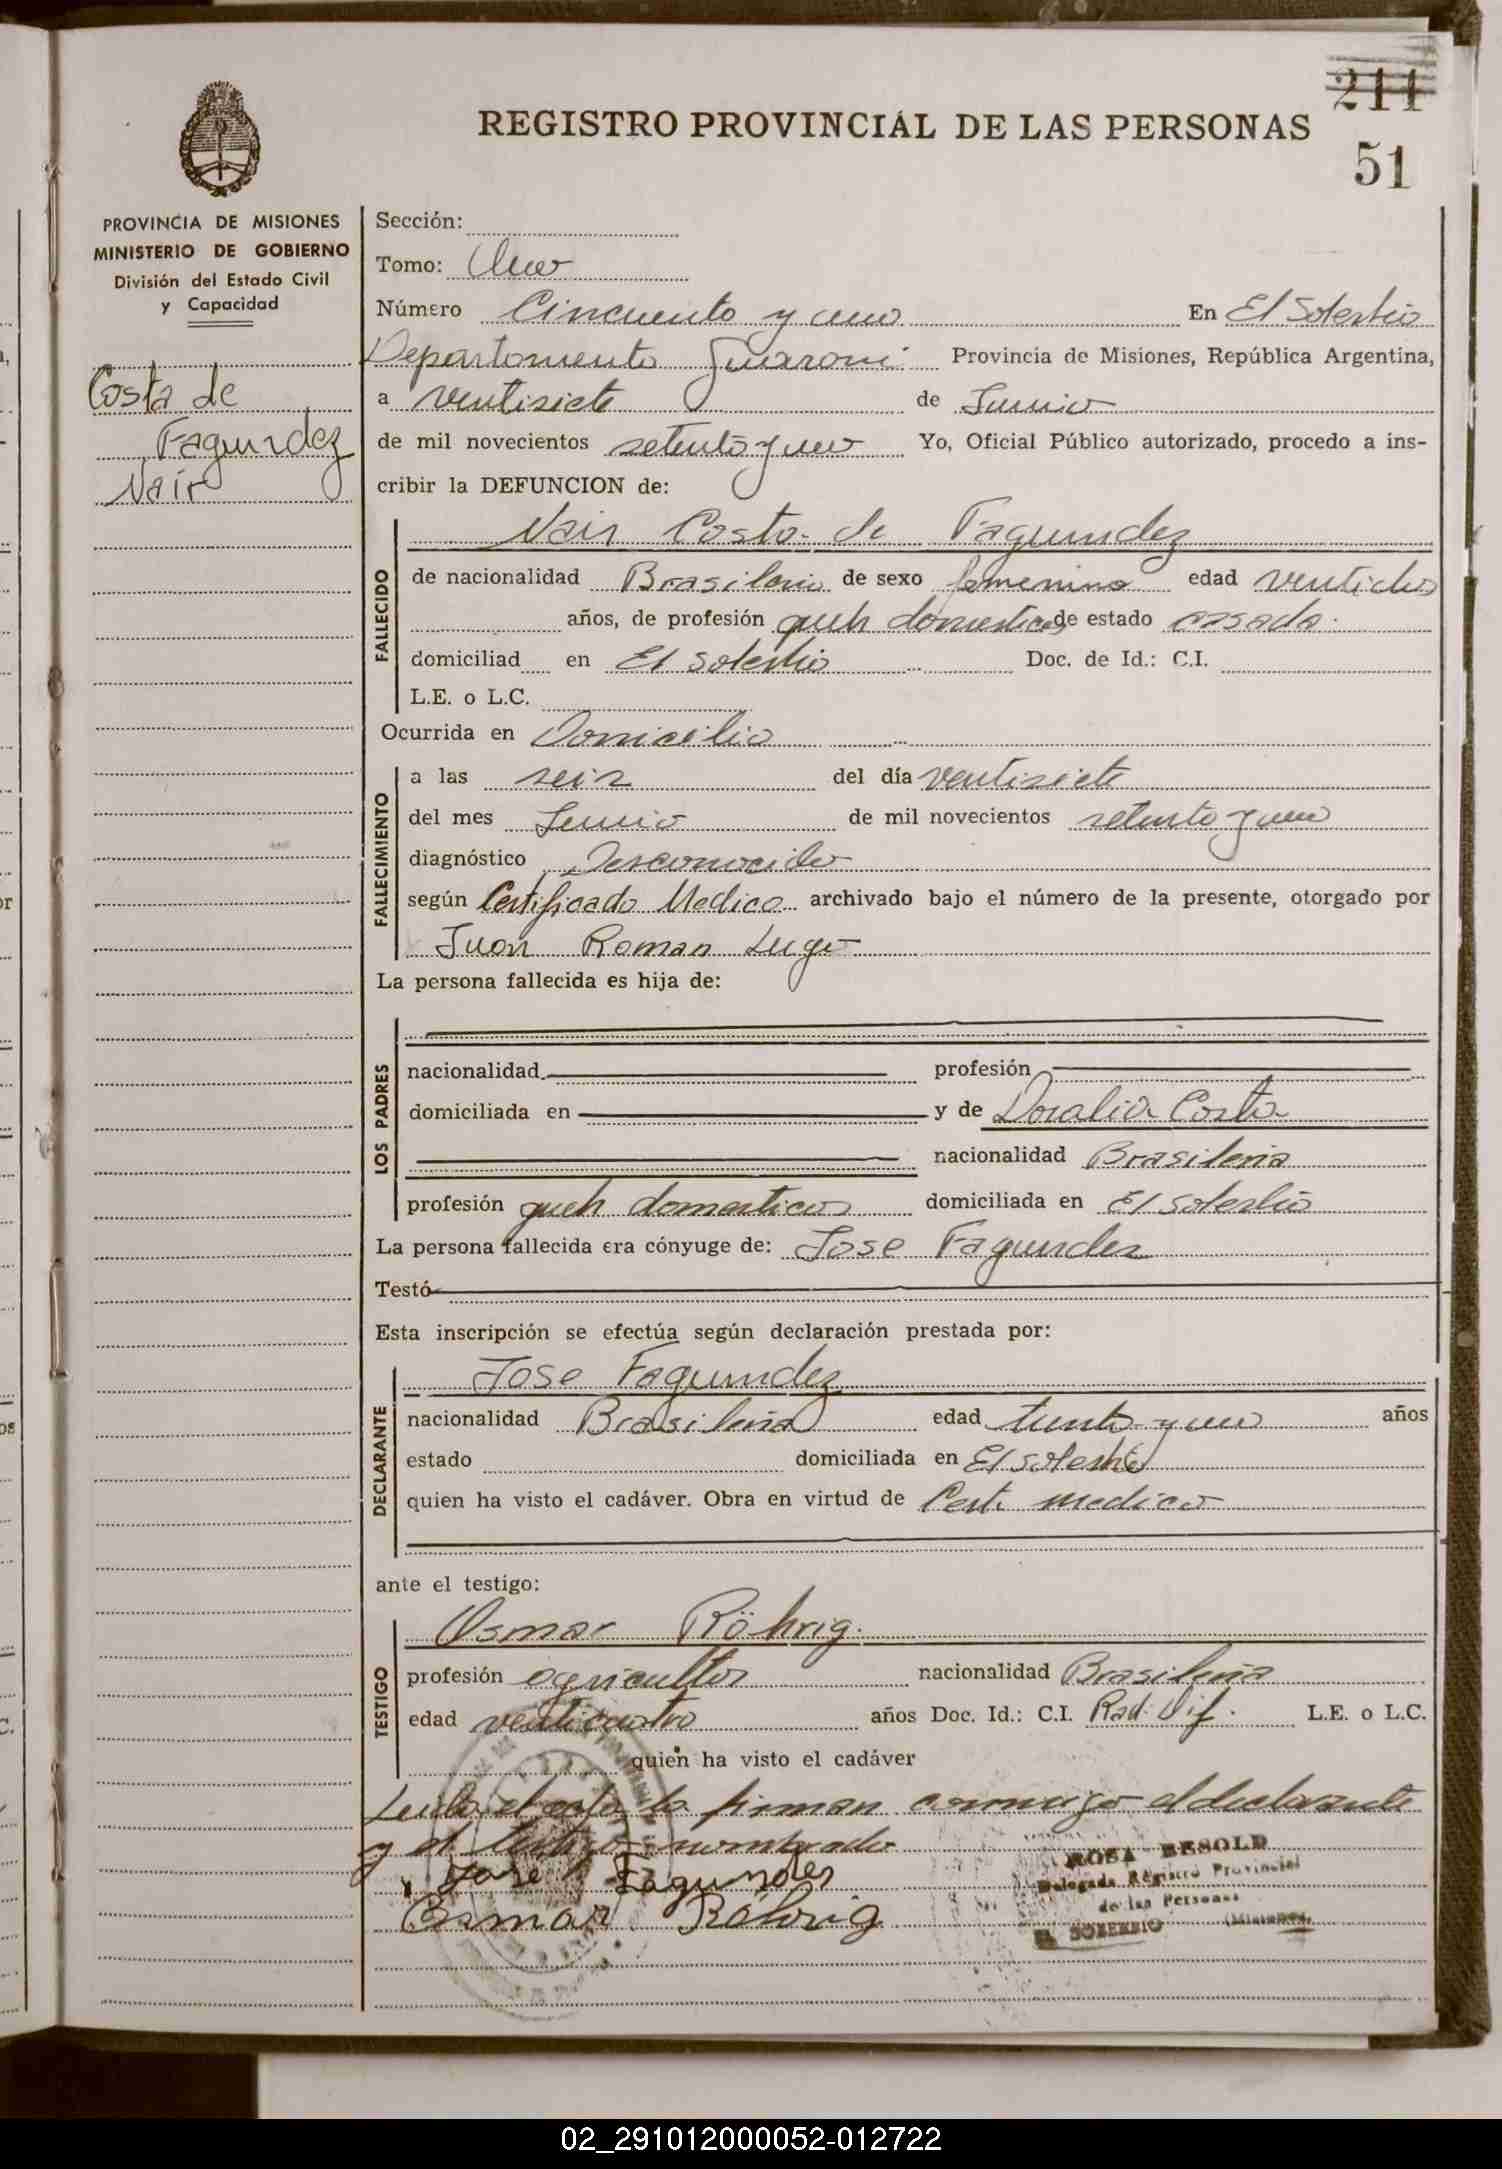 211
REGISTRO PROVINCIAL DE LAS PERSONAS
51
PROVINCIA DE MISIONES
MINISTERIO DE GOBIERNO
División del Estado Civil
y Capacidad
Costa de
Fagundez
Nair
Sección:
Tomo: Uno
Número Cincuenta y uno En El Soberbio
Departamento Guarani Provincia de Misiones, República Argentina,
a ventisiete de Junio
de mil novecientos setenta y uno Yo, Oficial Público autorizado, procedo a ins-
cribir la DEFUNCION de:
Nair Costa de Fagundez
FALLECIDO
de nacionalidad Brasileña de sexo femenino edad ventidos
años, de profesión queh domesticos de estado casada.
domiciliad en El Soberbio Doc. de Id.: C.I.
L.E. o L.C.
Ocurrida en Domicilio
FALLECIMIENTO
a las seis del día ventisiete
del mes Junio de mil novecientos setenta y uno
diagnóstico Desconocido
según Certificado Medico archivado bajo el número de la presente, otorgado por
Juan Roman Lugo
La persona fallecida es hija de:
LOS PADRES
nacionalidad profesión
domiciliada en y de Doralia Costa
nacionalidad Brasileña
profesión queh domesticos domiciliada en El Soberbio
La persona fallecida era cónyuge de: Jose Fagundez
Testó
Esta inscripción se efectúa según declaración prestada por:
Jose Fagundez
DECLARANTE
nacionalidad Brasileña edad trenta y uno años
estado domiciliada en El Soberbio
quien ha visto el cadáver. Obra en virtud de Cert. medico
ante el testigo:
Osmar Röhrig.
TESTIGO
profesión agricultor nacionalidad Brasileña
edad venticuatro años Doc. Id.: C.I. Rad. Dif. L.E. o L.C.
quien ha visto el cadáver
Leida el acta la firman conmigo el declarante
y el testigo nombrado
x Jose Fagundes
Osmar Röhrig
ROSA BESOLD
Delegada Registro Provincial
de las Personas
EL SOBERBIO (Misiones)
02_291012000052-012722